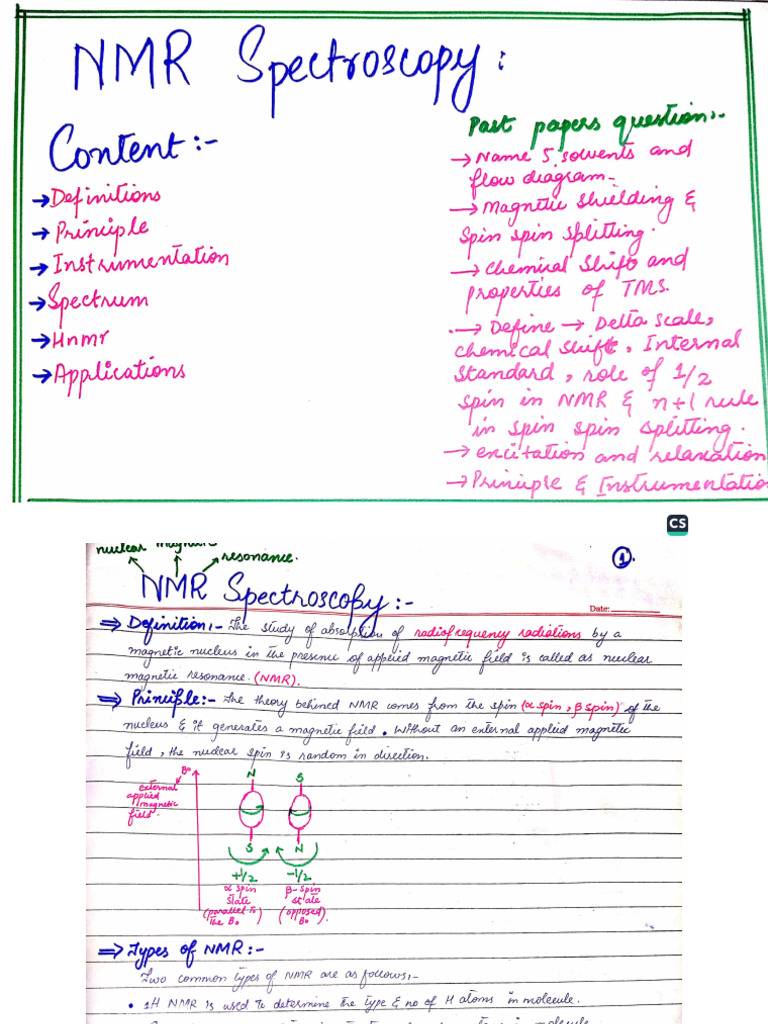 NMR Spectroscopy:
Content:-
→ Definitions
→ Principle
→ Instrumentation
→ Spectrum
→ Hnmr
→ Applications
Past papers question:-
→ Name 5 solvents and
flow diagram-
→ Magnetic shielding &
spin spin splitting.
→ Chemical shift and
properties of TMS.
→ Define → Delta scale,
chemical shift, Internal
standard, role of 1/2
spin in NMR & n+1 rule
in spin spin splitting.
→ excitation and relaxation
→ Principle & Instrumentatio
CS
nuclear magnetic
resonance.
1.
NMR Spectroscopy:-
Date:
⇒ Definition:- The study of absorption of radiofrequency radiations by a
magnetic nucleus in the presence of applied magnetic field is called as nuclear
magnetic resonance. (NMR).
⇒ Principle:- The theory behined NMR comes from the spin (α spin, β spin) of the
nucleus & it generates a magnetic field. Without an enternal applied magnetic
field, the nuclear spin is random in direction.
B₀
external
applied
magnetic
field.
N S
S N
+1/2 -1/2
α spin β-spin
state state
(parallel to (opposed
the B₀) B₀)
⇒ Types of NMR:-
Two common types of NMR are as follows:-
• 1H NMR is used to determine the type & no of H atoms in molecule.